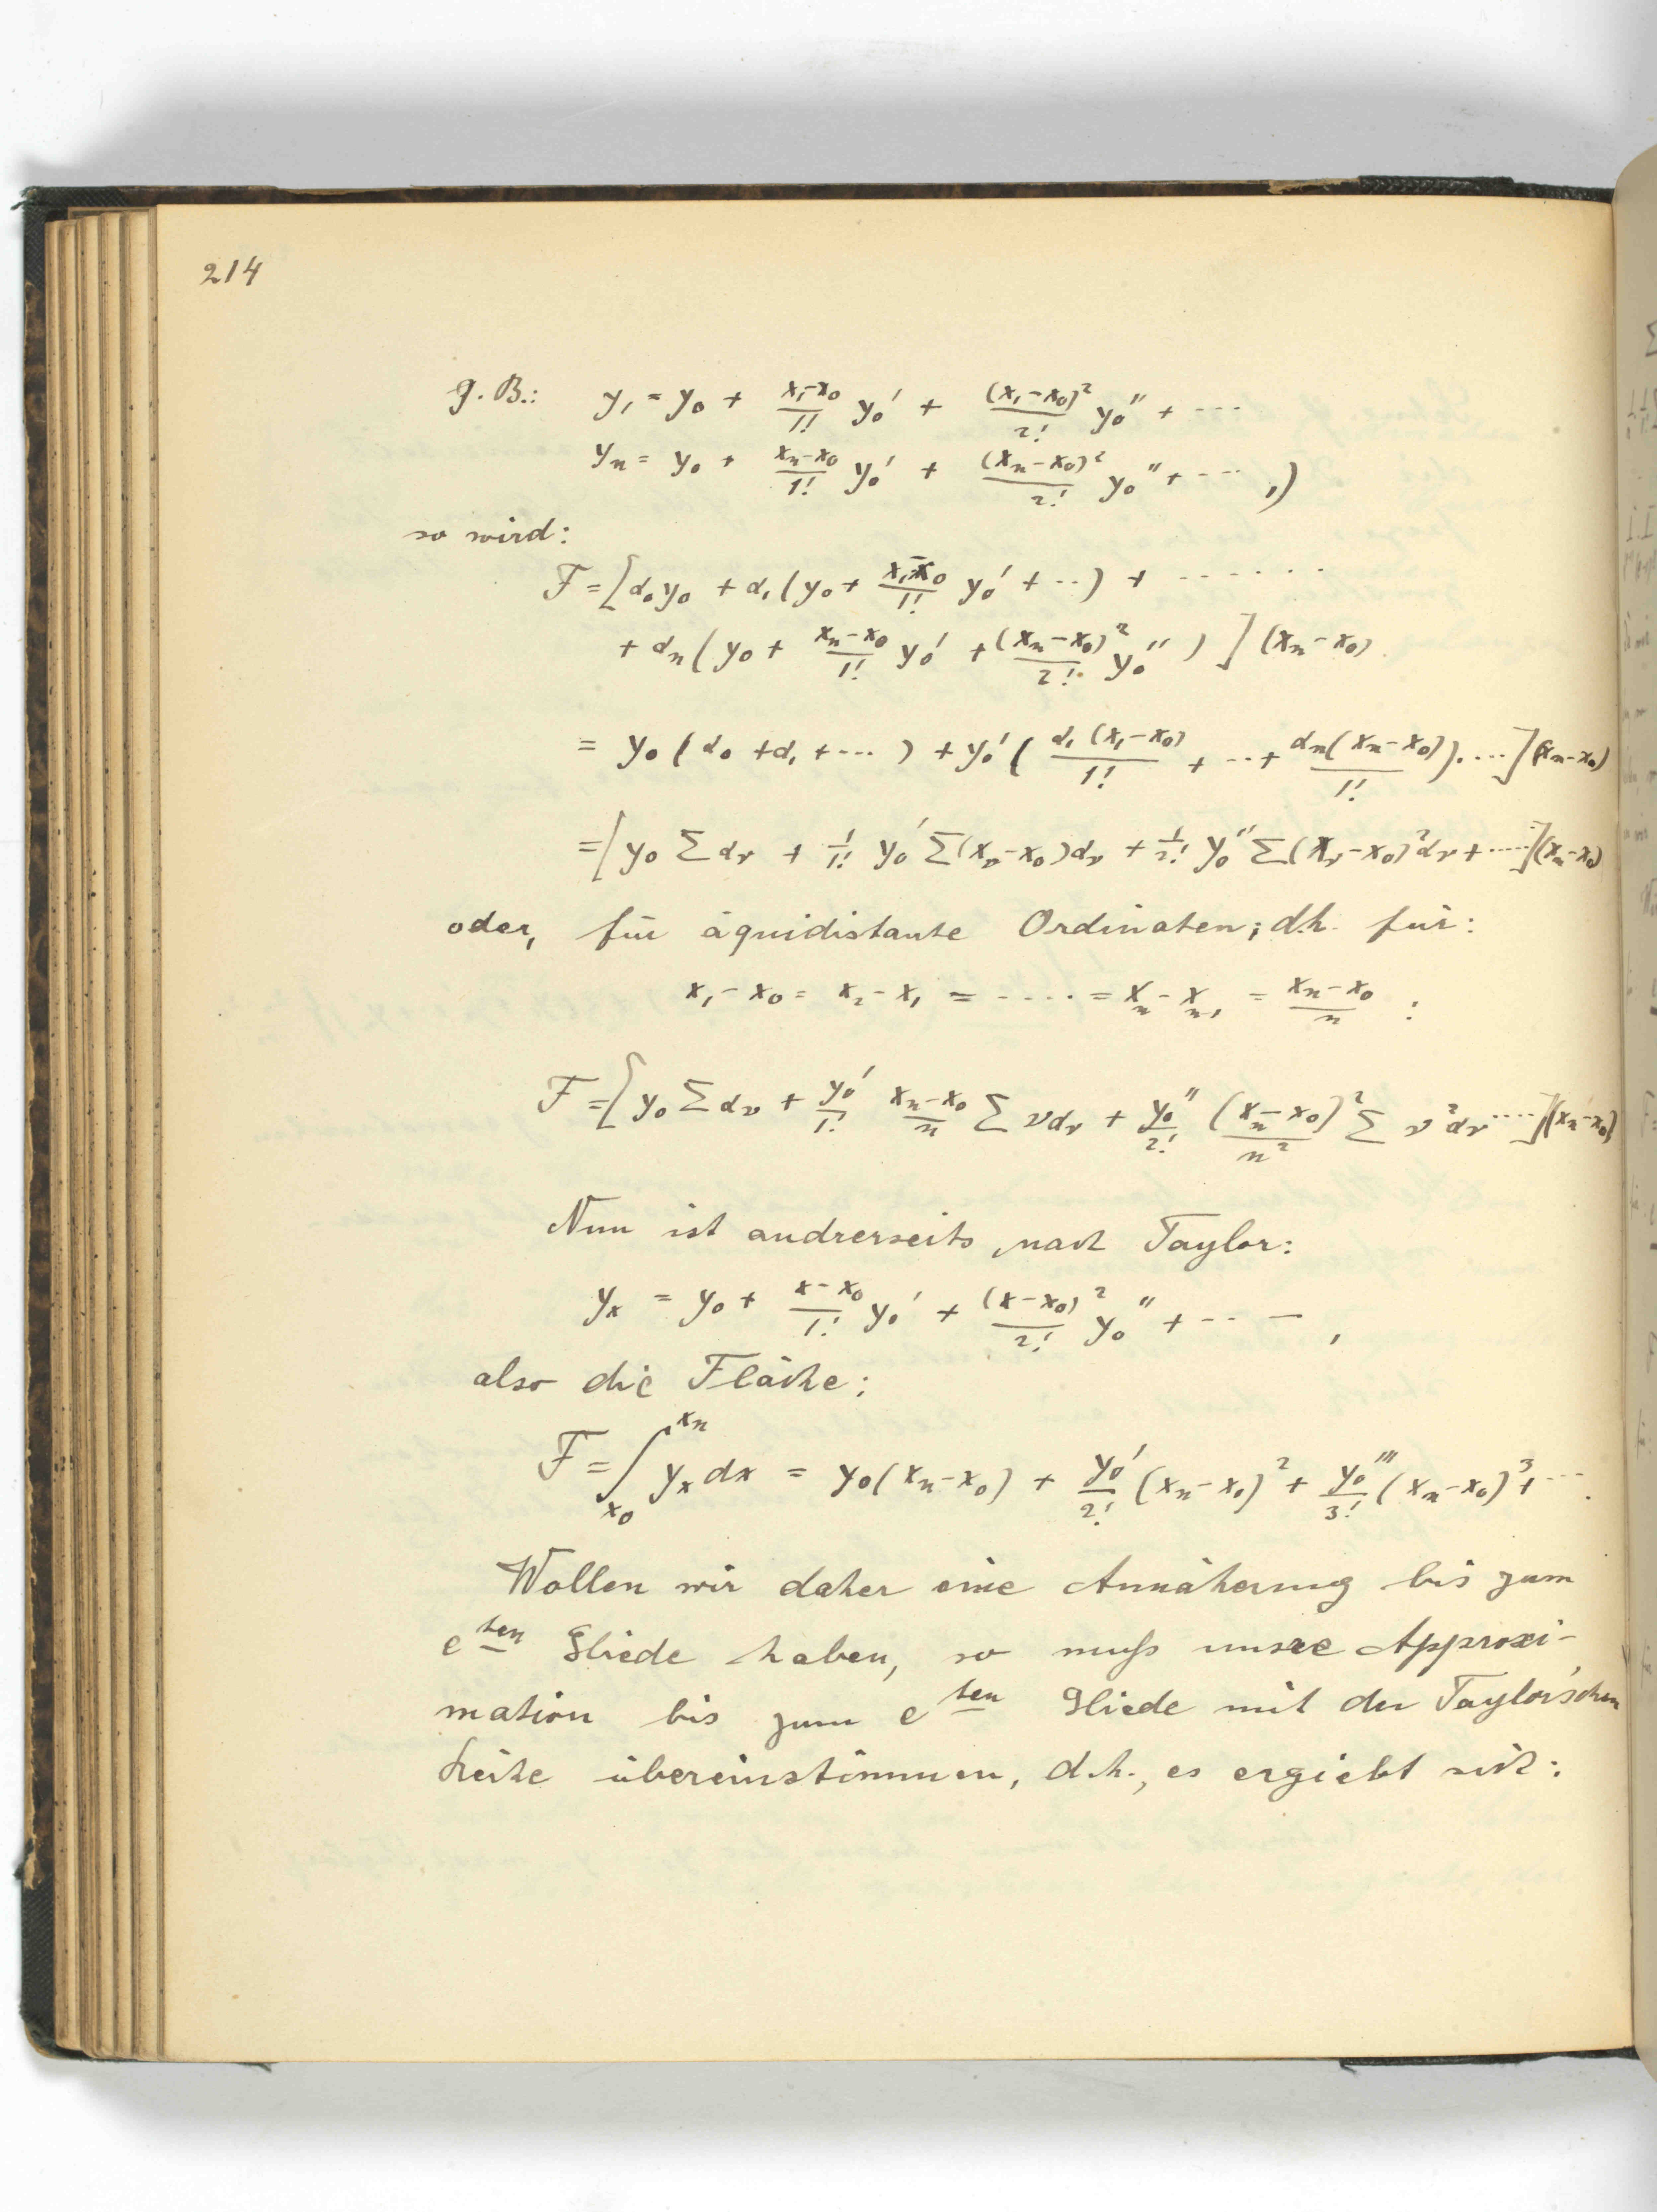 214
z.B.: y₁ = y₀ + (x₁-x₀)/1! y₀' + (x₁-x₀)²/2! y₀'' + ···
yₙ = y₀ + (xₙ-x₀)/1! y₀' + (xₙ-x₀)²/2! y₀'' + ··· ,)
so wird:
F = [α₀y₀ + α₁(y₀ + (x₁-x₀)/1! y₀' + ··) + ·······
+ αₙ(y₀ + (xₙ-x₀)/1! y₀' + (xₙ-x₀)²/2! y₀'' ) ] (xₙ-x₀)
= y₀ (α₀ + α₁ + ···) + y₀' ( α₁(x₁-x₀)/1! + ··· + αₙ(xₙ-x₀)/1! ). ···] (xₙ-x₀)
= [y₀ Σ αᵥ + 1/1! y₀' Σ(xᵥ-x₀)αᵥ + 1/2! y₀'' Σ(xᵥ-x₀)²αᵥ + ·····] (xₙ-x₀)
oder, für äquidistante Ordinaten; d.h. für:
x₁-x₀ = x₂-x₁ = ····· = xₙ-xₙ₋₁ = (xₙ-x₀)/n :
F = [y₀ Σ αᵥ + y₀'/1! (xₙ-x₀)/n Σ ναᵥ + y₀''/2! (xₙ-x₀)²/n² Σ ν²αᵥ ····] (xₙ-x₀)
Nun ist andrerseits, nach Taylor:
yₓ = y₀ + (x-x₀)/1! y₀' + (x-x₀)²/2! y₀'' + ··· — ,
also die Fläche:
F = ∫ₓ₀ˣⁿ yₓ dx = y₀(xₙ-x₀) + y₀'/2! (xₙ-x₀)² + y₀'''/3! (xₙ-x₀)³ + ··· .
Wollen wir daher eine Annäherung bis zum
e^ten Gliede haben, so muß unsre Approxi-
mation bis zum e^ten Gliede mit der Taylor'schen
Reihe übereinstimmen, d.h., es ergiebt sich: